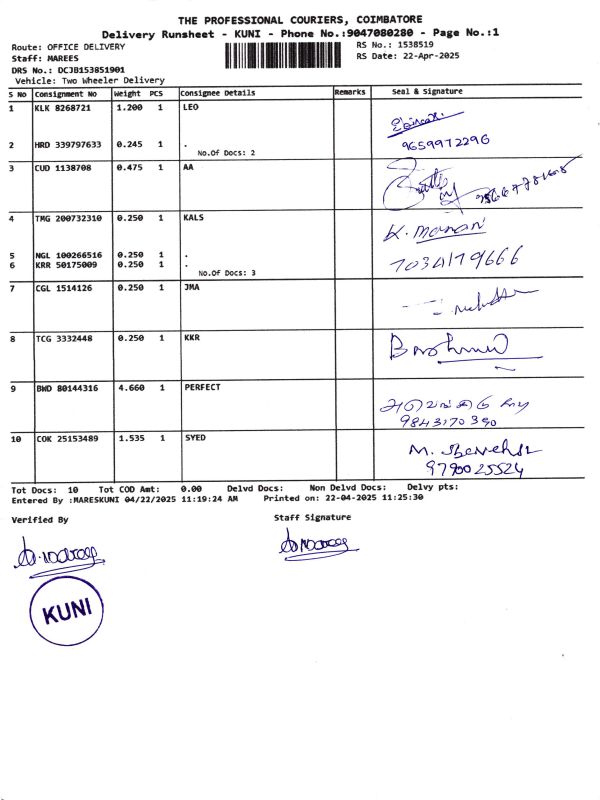 THE PROFESSIONAL COURIERS, COIMBATORE
Delivery Runsheet - KUNI - Phone No.:9047080280 - Page No.:1
Route: OFFICE DELIVERY
RS No.: 1538519
Staff: MAREES
RS Date: 22-Apr-2025
DRS No.: DCJB153851901
Vehicle: Two Wheeler Delivery
S No Consignment No Weight PCS Consignee Details Remarks Seal & Signature
1 KLK 8268721 1.200 1 LEO
2 HRD 339797633 0.245 1 . 9659972296
No.Of Docs: 2
3 CUD 1138708 0.475 1 AA
4 TMG 200732310 0.250 1 KALS K. Manan
5 NGL 100266516 0.250 1 . 7034179666
6 KRR 50175009 0.250 1 .
No.Of Docs: 3
7 CGL 1514126 0.250 1 JMA
8 TCG 3332448 0.250 1 KKR
9 BWD 80144316 4.660 1 PERFECT
9843170390
10 COK 25153489 1.535 1 SYED M.
9790025524
Tot Docs: 10 Tot COD Amt: 0.00 Delvd Docs: Non Delvd Docs: Delvy pts:
Entered By :MARESKUNI 04/22/2025 11:19:24 AM Printed on: 22-04-2025 11:25:30
Verified By Staff Signature
KUNI